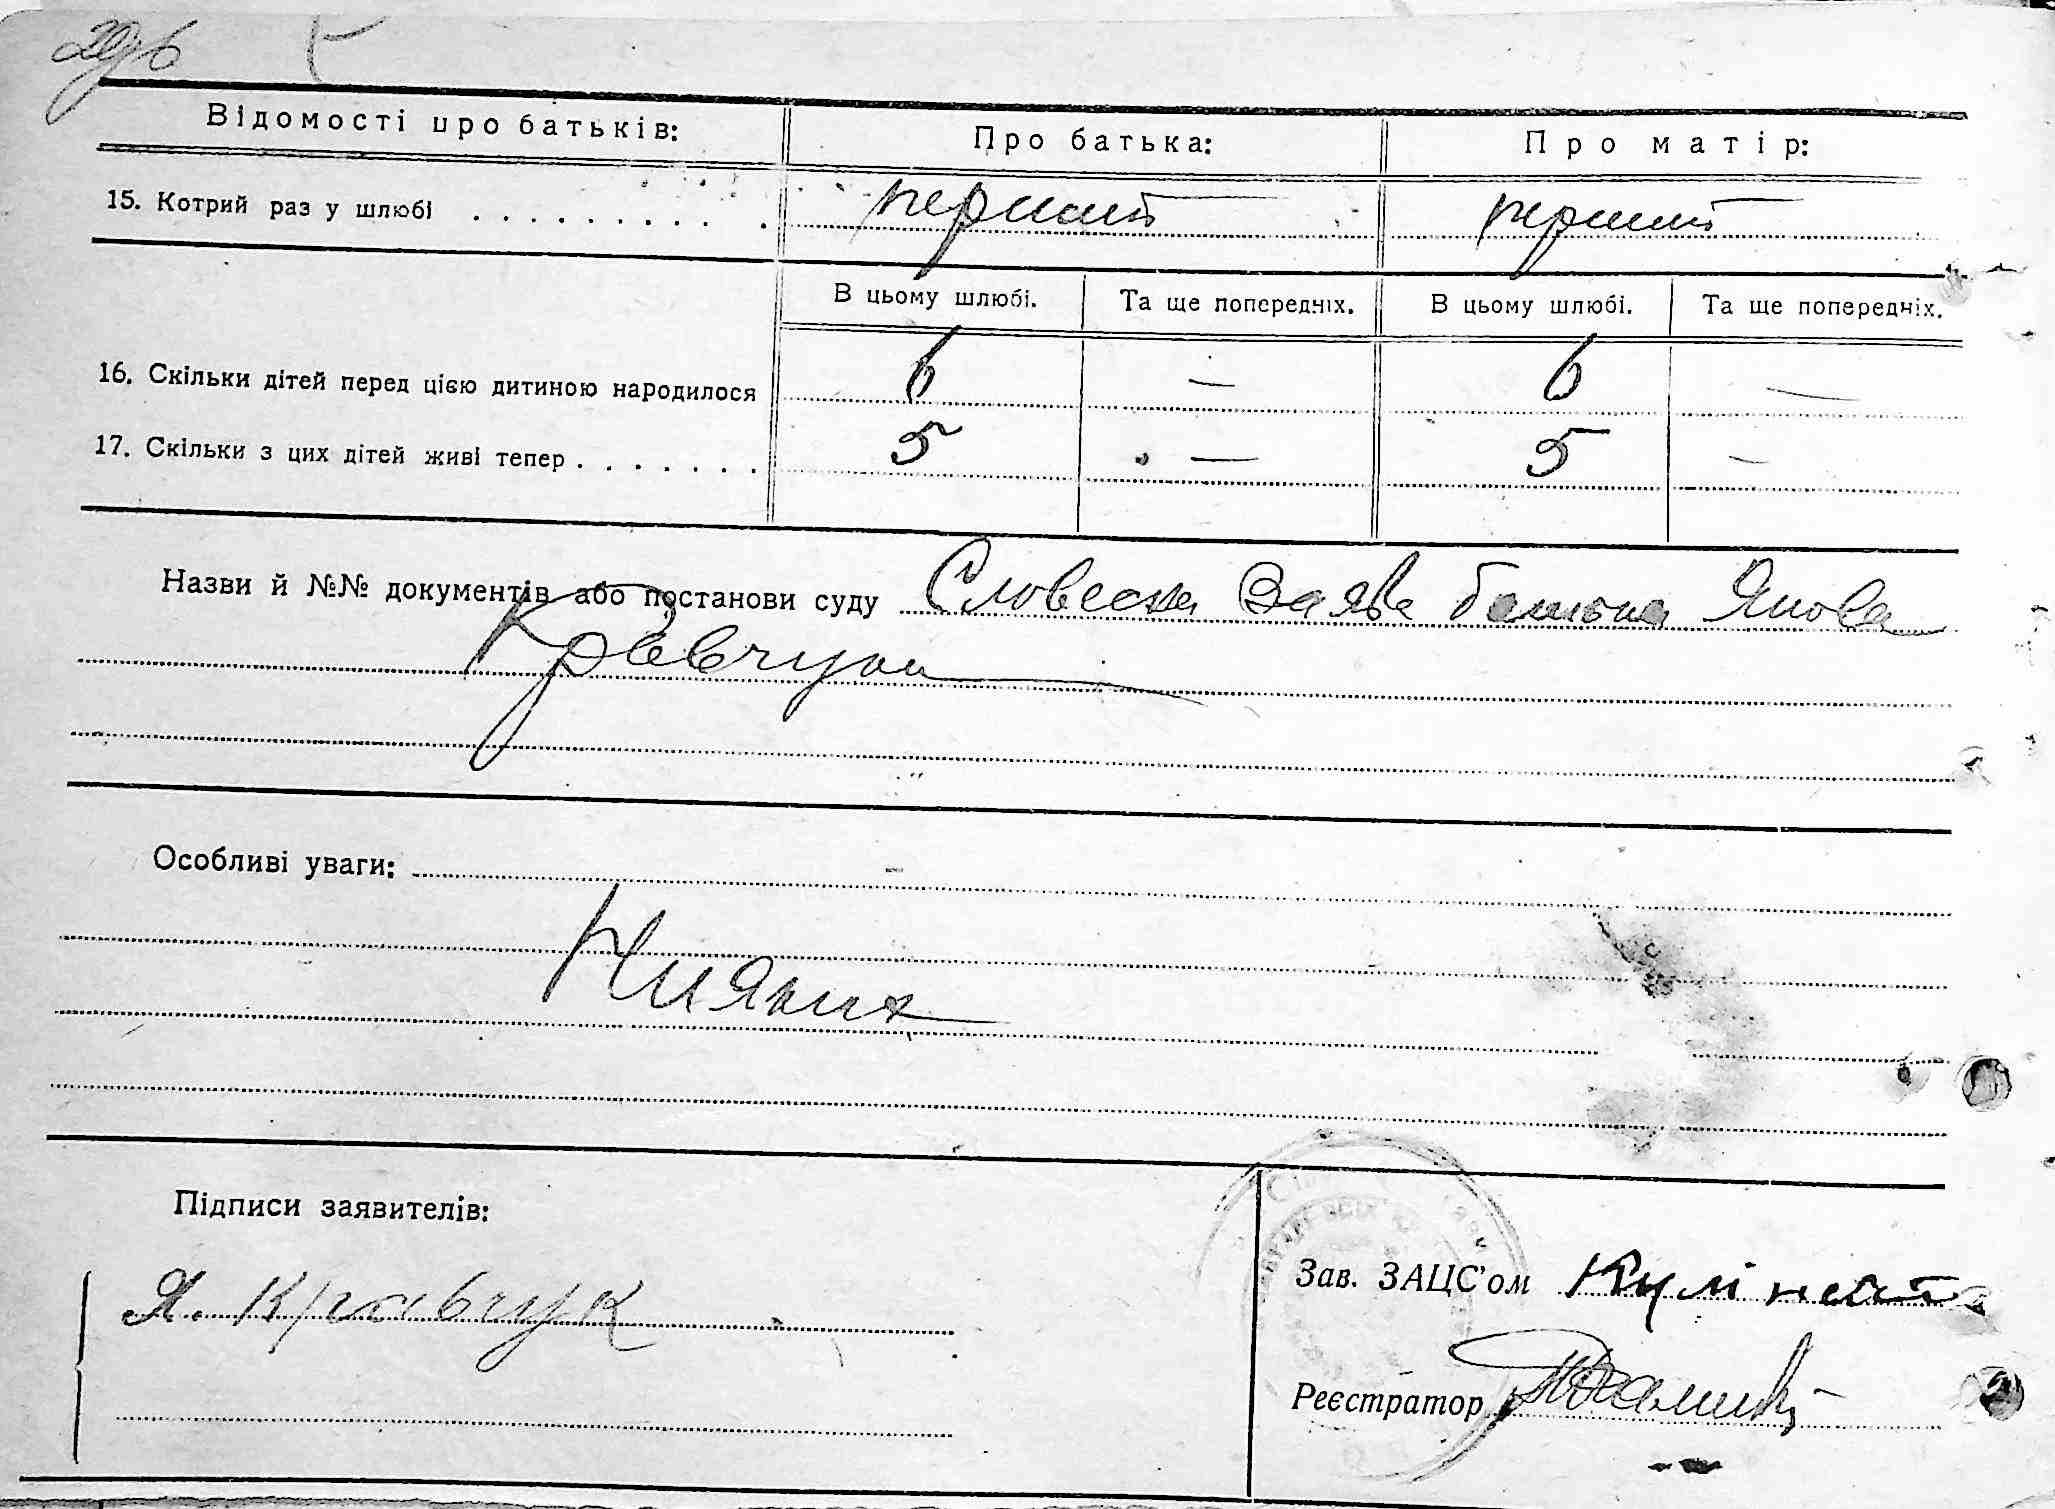 Відомості про батьків: Про батька: Про матір:
15. Котрий раз у шлюбі . . . . . . . . . . перший перший
В цьому шлюбі. Та ще попередніх. В цьому шлюбі. Та ще попередніх.
16. Скільки дітей перед цією дитиною народилося 6 — 6 —
17. Скільки з цих дітей живі тепер . . . . . . . 5 — 5 —
Назви й №№ документів або постанови суду Словесна Заява батька Якова
Кравчука
Особливі уваги:
Ніяких
Підписи заявителів:
Я. Кравчук
Зав. ЗАЦС'ом
Реєстратор